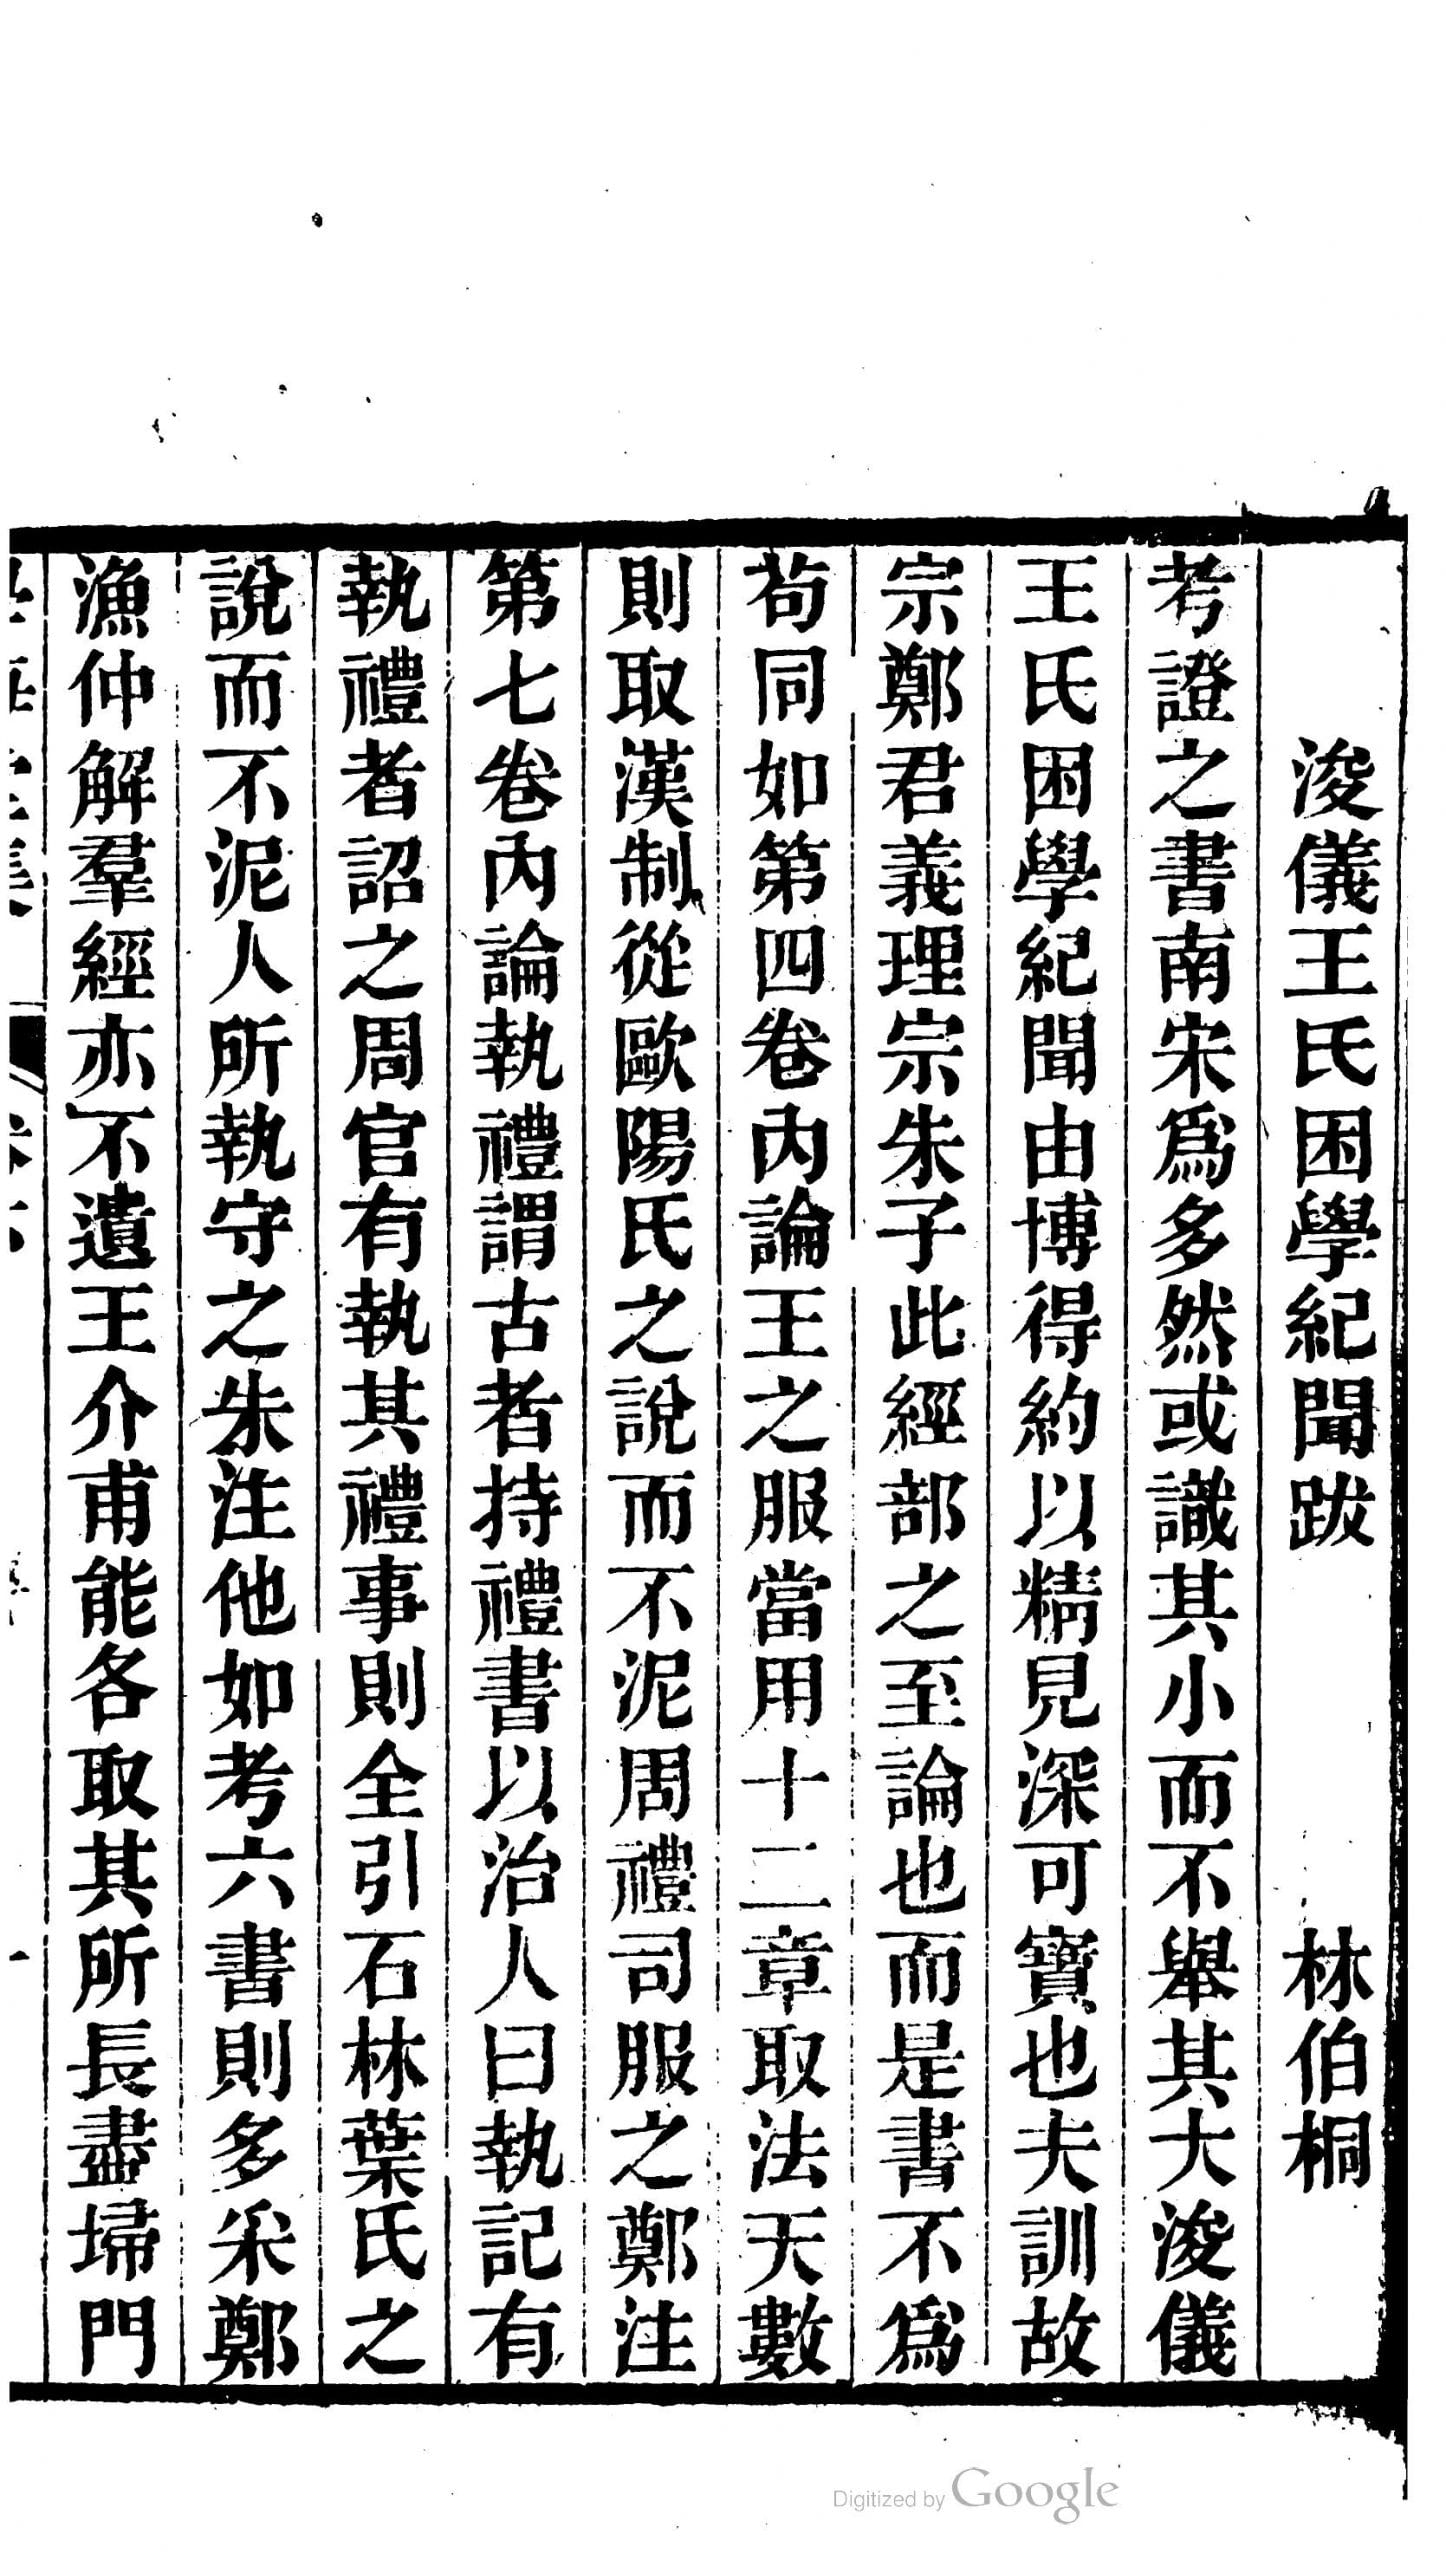 浚儀王氏困學紀聞跋 林伯桐
考證之書南宋爲多然或識其小而不舉其大浚儀
王氏困學紀聞由博得約以精見深可寶也夫訓故
宗鄭君義理宗朱子此經部之至論也而是書不爲
苟同如第四卷內論王之服當用十二章取法天數
則取漢制從歐陽氏之說而不泥周禮司服之鄭注
第七卷內論執禮謂古者持禮書以治人曰執記有
執禮者詔之周官有執其禮事則全引石林葉氏之
說而不泥人所執守之朱注他如考六書則多采鄭
漁仲解羣經亦不遺王介甫能各取其所長盡埽門
Digitized by Google